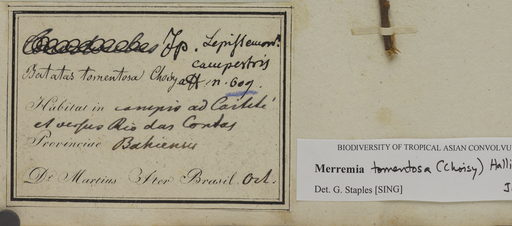 Jp. Lepistemon.
campestris
Batatas tomentosa Choisy aff n. 609
Habitat in campis ad Caitité
et versus Rio das Contas
Provinciae Bahiensis
Dr Martius Iter Brasil. Oct.
BIODIVERSITY OF TROPICAL ASIAN CONVOLVU
Merremia tomentosa (Choisy) Halli
Det. G. Staples [SING] J